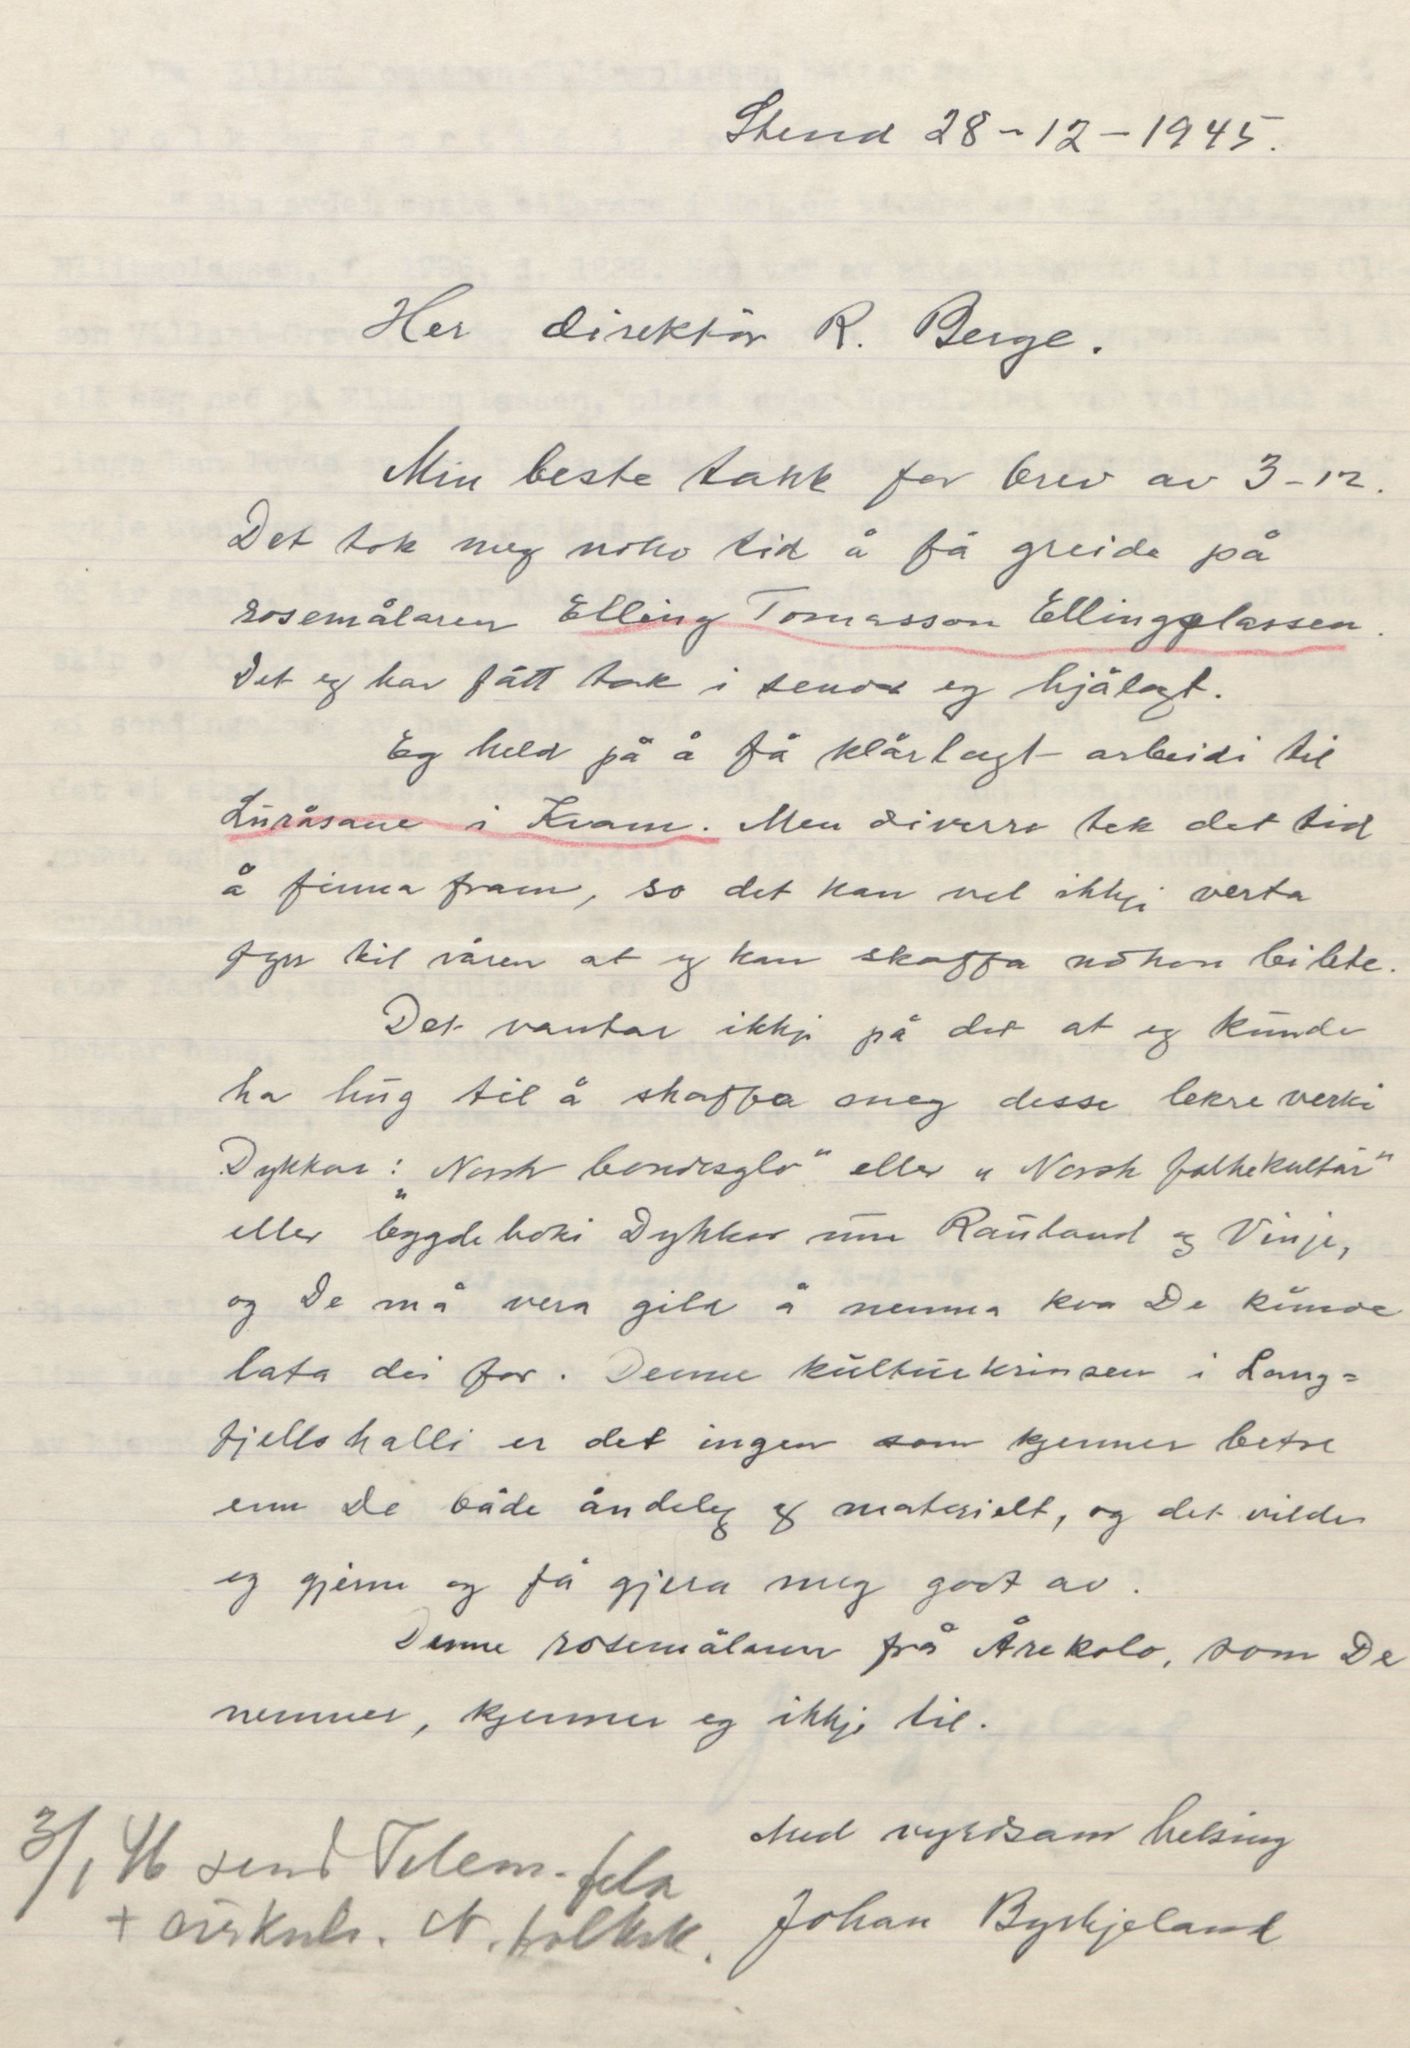 Stend 28-12-1945.
Her direktör R. Berge.
Min beste takk for brev av 3-12.
Det tok meg noko tid å få greide på
rosemålaren Elling Tomasson Ellingplassen.
Det eg har fått tak i sender eg hjålagt.
Eg held på å få klårlagt arbeidi til
Luråsane i Kvam. Men diverre tek det tid
å finna fram, so det kan vel ikkje verta
fyrr til våren at eg kan skaffa nokon bilete.
Det vantar ikkje på det at eg kunde
ha hug til å skaffa meg desse lekre verki
Dykkar: „Norsk bondesylv“ eller „Norsk folkekultur“
eller bygdeboki Dykkar um Rauland og Vinje,
og De må vera gild å nemna kva De kunde
lata dei for. Denne kulturkrinsen i Lang=
fjellshalli er det ingen som kjenner betre
enn De både åndeleg og materielt, og det vilde
eg gjerne og få gjera meg godt av.
Denne rosemålaren frå Årekolo, som De
nemner, kjenner eg ikkje til.
Med vyrdsam helsing
Johan Byrkjeland
3/1 46 send Telem. fela
+ cirkul. N. folkek.